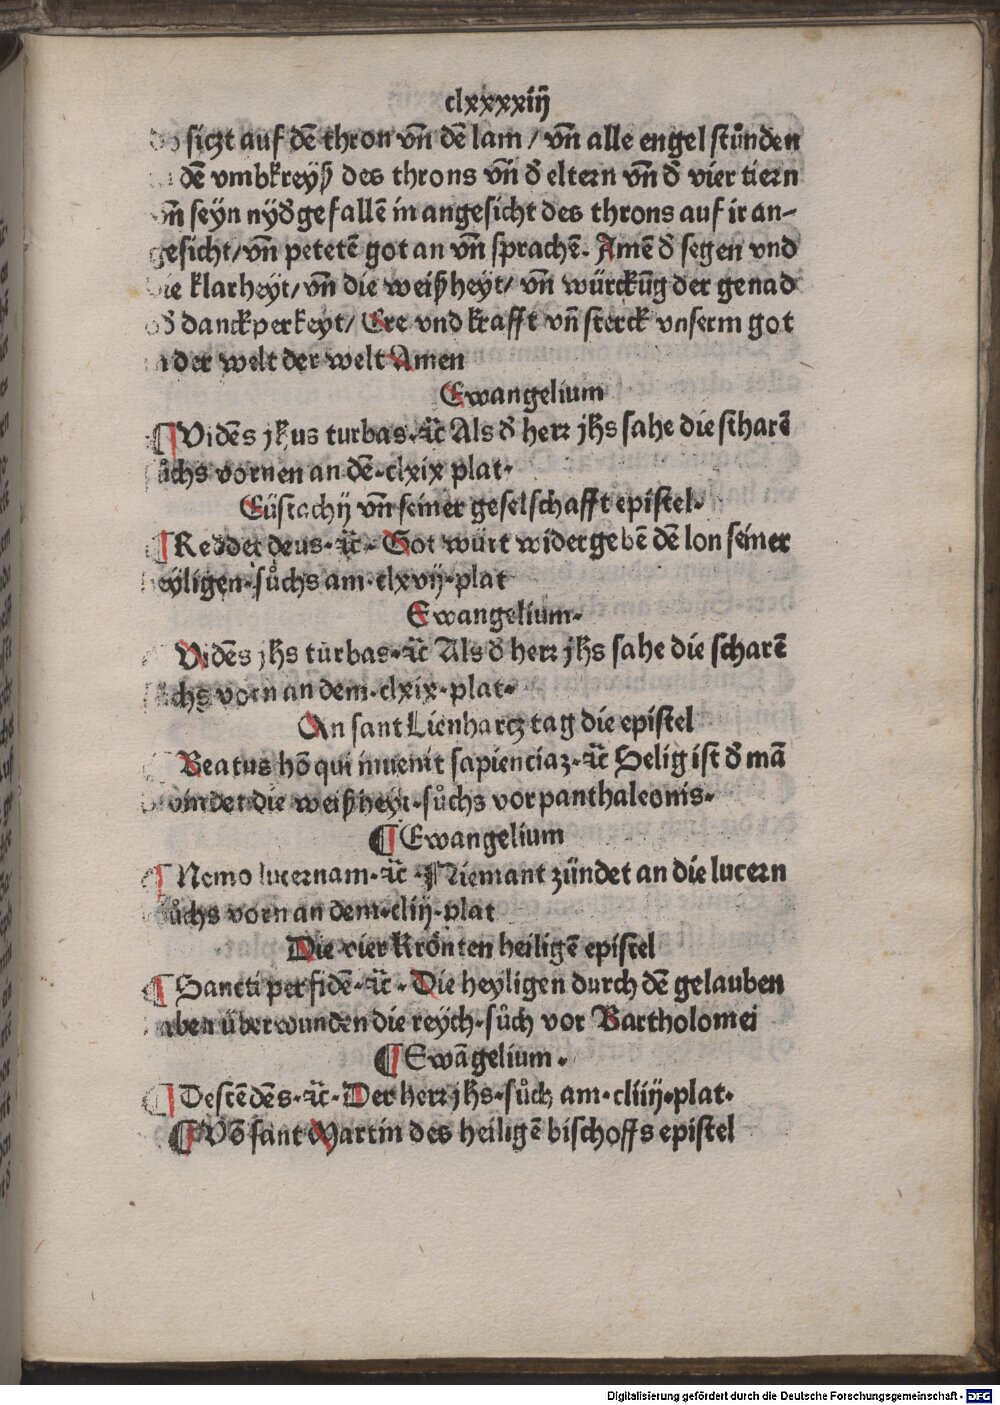 clxxxxiij
siczt auf dē thron vn̄ dē lam / vn̄ alle engel stůnden
dē vmbkreyß des throns vn̄ d̄ eltern vn̄ d̄ vier tiern
vn̄ seyn nyd̄gefallē in angesicht des throns auf ir an-
gesicht/ vn̄ petetē got an vn̄ sprachē. Amē d̄ segen vnd
die klarheyt/ vn̄ die weißheyt/ vn̄ würckūg der genad
d̄ danckperkeyt/ Ere vnd krafft vn̄ sterck vnserm got
in der welt der welt Amen
Ewangelium
¶ Vidēs jhus turbas. ⁊c̄ Als d̄ herr jhs sahe die scharē
sůchs vornen an dē. clxix plat.
Eüstachij vn̄ seiner geselschafft epistel.
¶ Reddet deus. ⁊c̄. Got würt widergebē dē lon seiner
heyligen. sůchs am. clxvij. plat
Ewangelium.
¶ Vidēs jhs turbas. ⁊c̄ Als d̄ herr jhs sahe die scharē
sůchs vorn an dem. clxix. plat.
An sant Lienhartz tag die epistel
¶ Beatus hō qui inuenit sapienciaz. ⁊c̄ Selig ist d̄ mā
vindet die weißheyt. sůchs vor panthaleonis.
¶ Ewangelium
¶ Nemo lucernam. ⁊c̄. Niemant zündet an die lucern
sůchs vorn an dem. cliij. plat
Die vier Krönten heiligē epistel
¶ Sancti per fidē. ⁊c̄. Die heyligen durch dē gelauben
haben überwunden die reÿch. sůch vor Bartholomei
¶ Ewāgelium.
¶ Descēdēs. ⁊c̄. Der herr jhs. sůch am. cliiij. plat.
¶ Vō sant Martin des heiligē bischoffs epistel
Digitalisierung gefördert durch die Deutsche Forschungsgemeinschaft - DFG